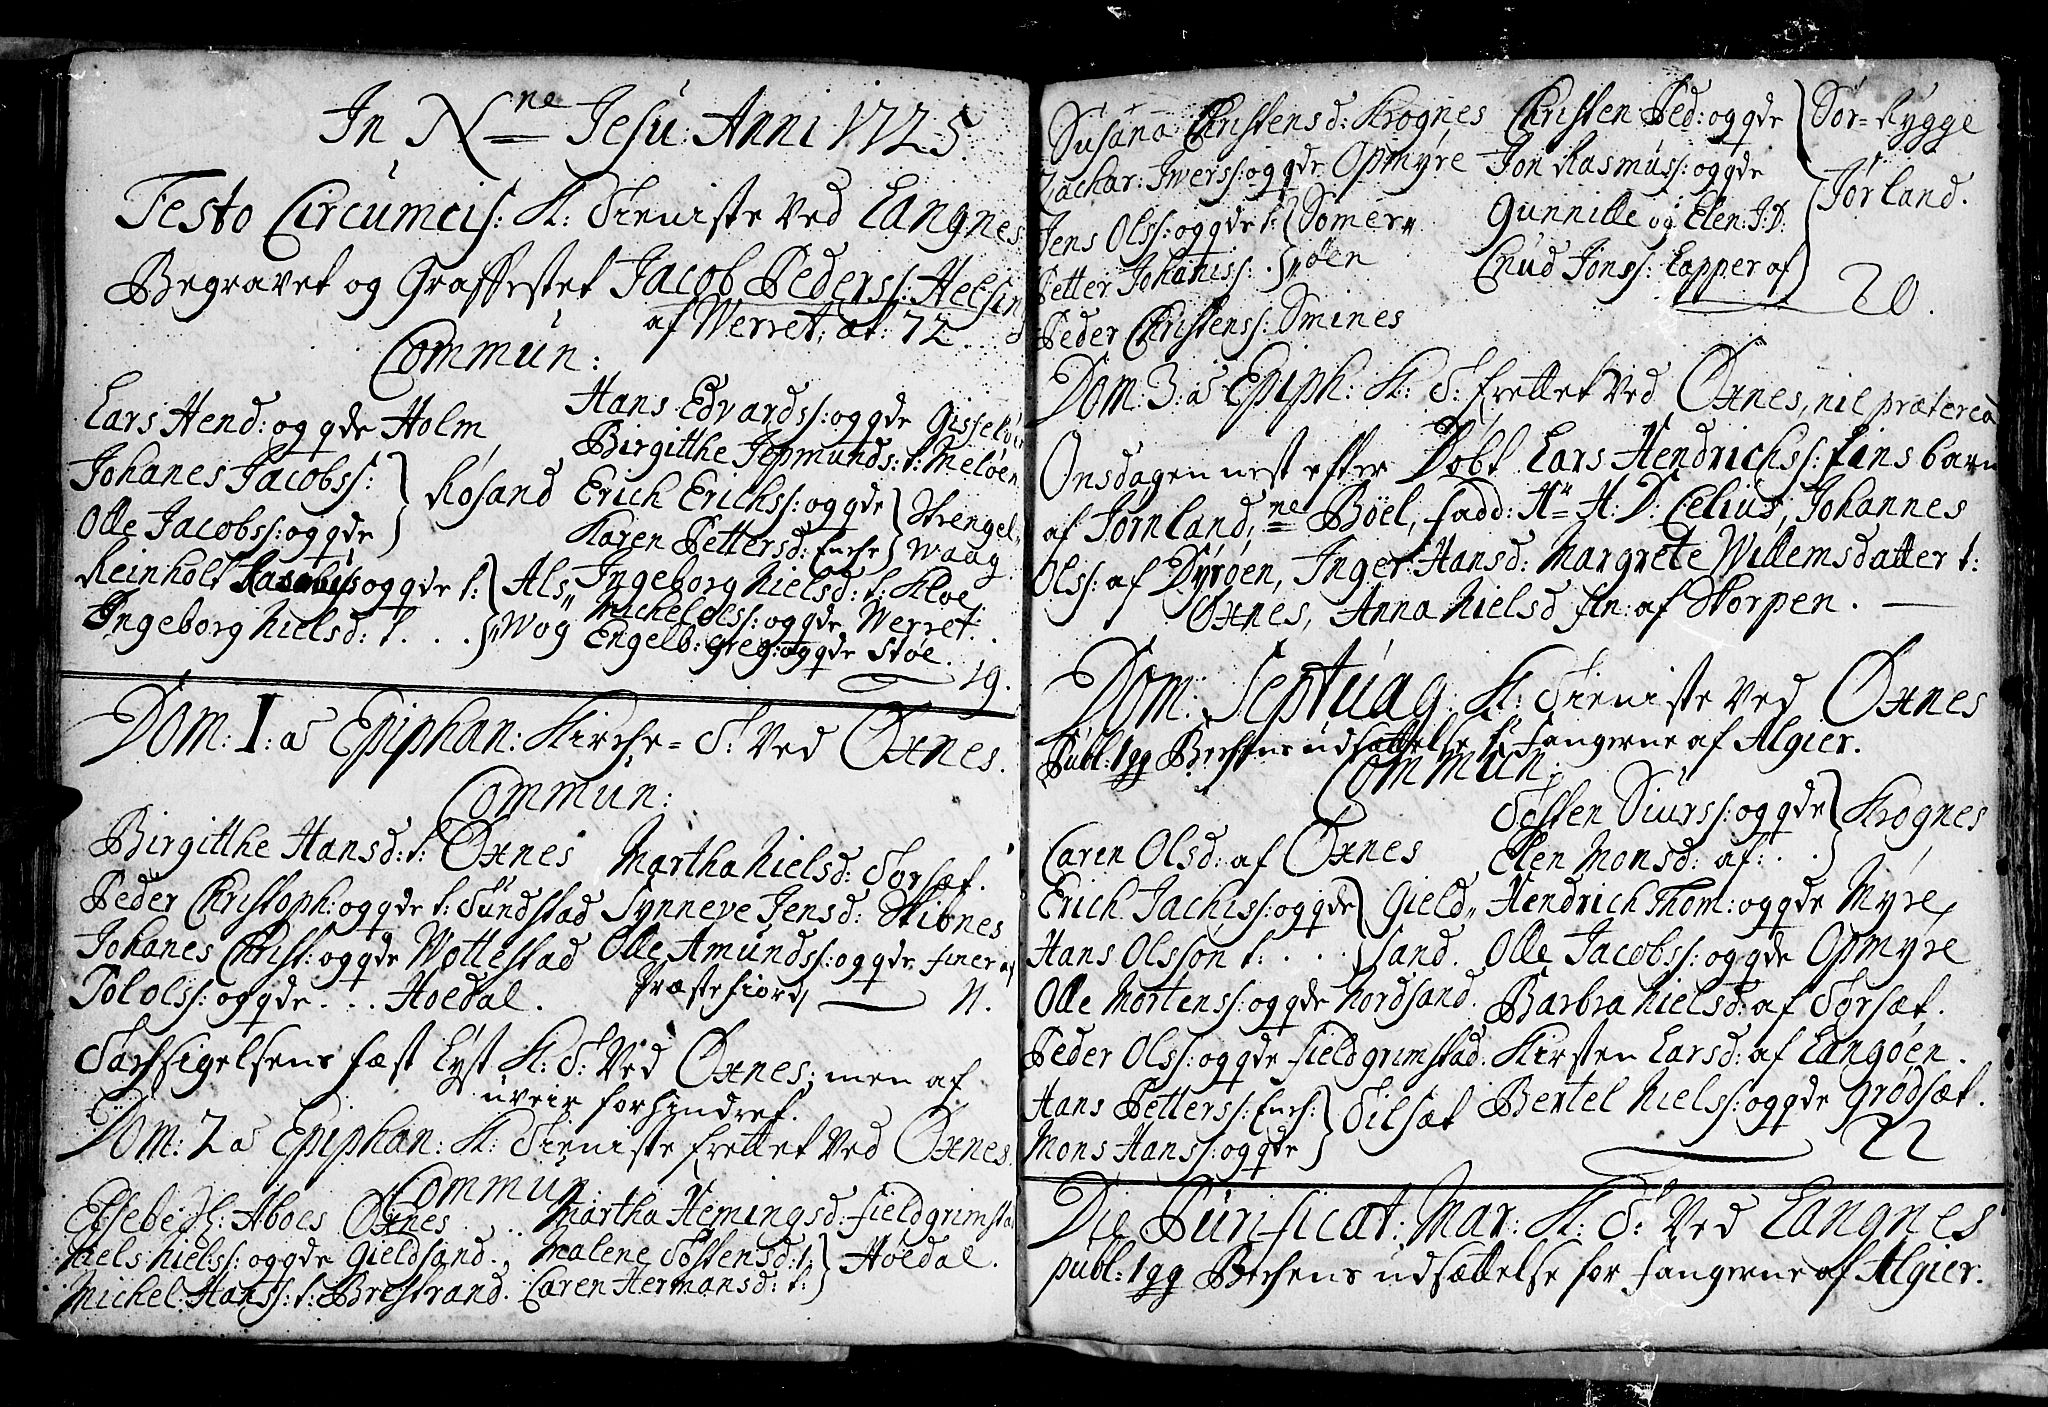 In N:ne Jesu: Anni 1725
Festo Circumcis: K: Tieniste Ved Langnes:
Begravet og Graffestet Jacob Peders: Helsing
af Werret; æt: 72.
Commun:
Lars Hend: og qde Holm
Johanes Jacobss: } Rosand
Olle Jacobss: og qde
Reinholt og qde t: } Als„
Ingeborg Nielsd: t . . . „Wog
Hans Edvardss: og qde Gisseløe
Birgitthe Jepmunds: t: Meløen
Erich Erichss: og qde } Strengel„
Karen Pettersd: Enche } Waag
Ingeborg Nielsd: t: Kloe
Michel Olss: og qde Werret:
Engelb: Greg: og qde Støe.
19.
Dom: I: a Epiphan: Kirche= T: Ved Øxnes.
Commun:
Birgitthe Hansd: t: Øxnes
Peder Christoph: og qde t: Sundstad
Johanes Christ: og qde Wottestad
Pol Olss: og qde . . . Høedal.
Martha Nielsd: Torsæt.
Synneve Jensd: Skibnes
Olle Amundss: og qde finer af
Præstefiord,
11.
Tachsigelsens fæst Lyst K: T: Ved Øxnes; men af
uveir forhindret.
Dom: 2 a Epiphan: K: Tieniste frettet Ved Øxnes.
Commun
Elsebeth: Aboes Øxnes . . .
Niels Nielss: og qde Gieldsand.
Michel Hanss: t: Brestrand.
Martha Hemingsd: Fieldgrimsta
Malene Tostensd: t: } Høedal.
Caren Hermansd: t: }
Susana Christensd: Krognes
Zachar: Iverss: og qde Opmyre
Jens Olss: og qde t: } Somer„
Petter Johaniss: . } „øen
Peder Christenss: Smines
Christen Ped: og qde } Sør=Rygge
Jon Rasmuss: og qde
Gunnille og Elen: J: D: } Jørland.
Cnud Jonss: Lapper af
20.
Dom: 3: a Epiph: K: T: frettet Ved Øxnes, nil præterea
Onsdagen nest efter Døbt Lars Hendrichss: fins barn
af Jørnland, ne Boel, fadd: Hr H: D: Celius, Johannes
Olss: af Dyrøen, Inger: Hansd: Margrete Willemsdatter t:
Øxnes, Anna Nielsd fin: af Skorpen.
Dom: Septuag: K: Tieniste Ved Øxnes
Publ: 1 gg Bechens udsættelse f: Fangerne af Algier.
Commun:
Caren Olsd: af Øxnes
Erich Jachiss: og qde } Gield„
Hans Olsson t: . . . } sand.
Olle Mortenss: og qde Nordsand.
Peder Olss: og qde Fieldgrimstad.
Hans Petterss: Ench: } Tilsæt
Mons Hanss: og qde
Tosten Siurss: og qde } Krognes
Elen Monsd: af: . . }
Hendrich Thom: og qde Myre,
Olle Jacobss: og qde Opmyre
Barbra Nielsd: af Torsæt.
Kirsten Larsd: af Langøen.
Bertel Nielss: og qde Grødsæt.
22
Die Purificat: Mar: K: T: Ved Langnes
publ: 1 gg Bechens udsættelse for Fangerne af Algier.